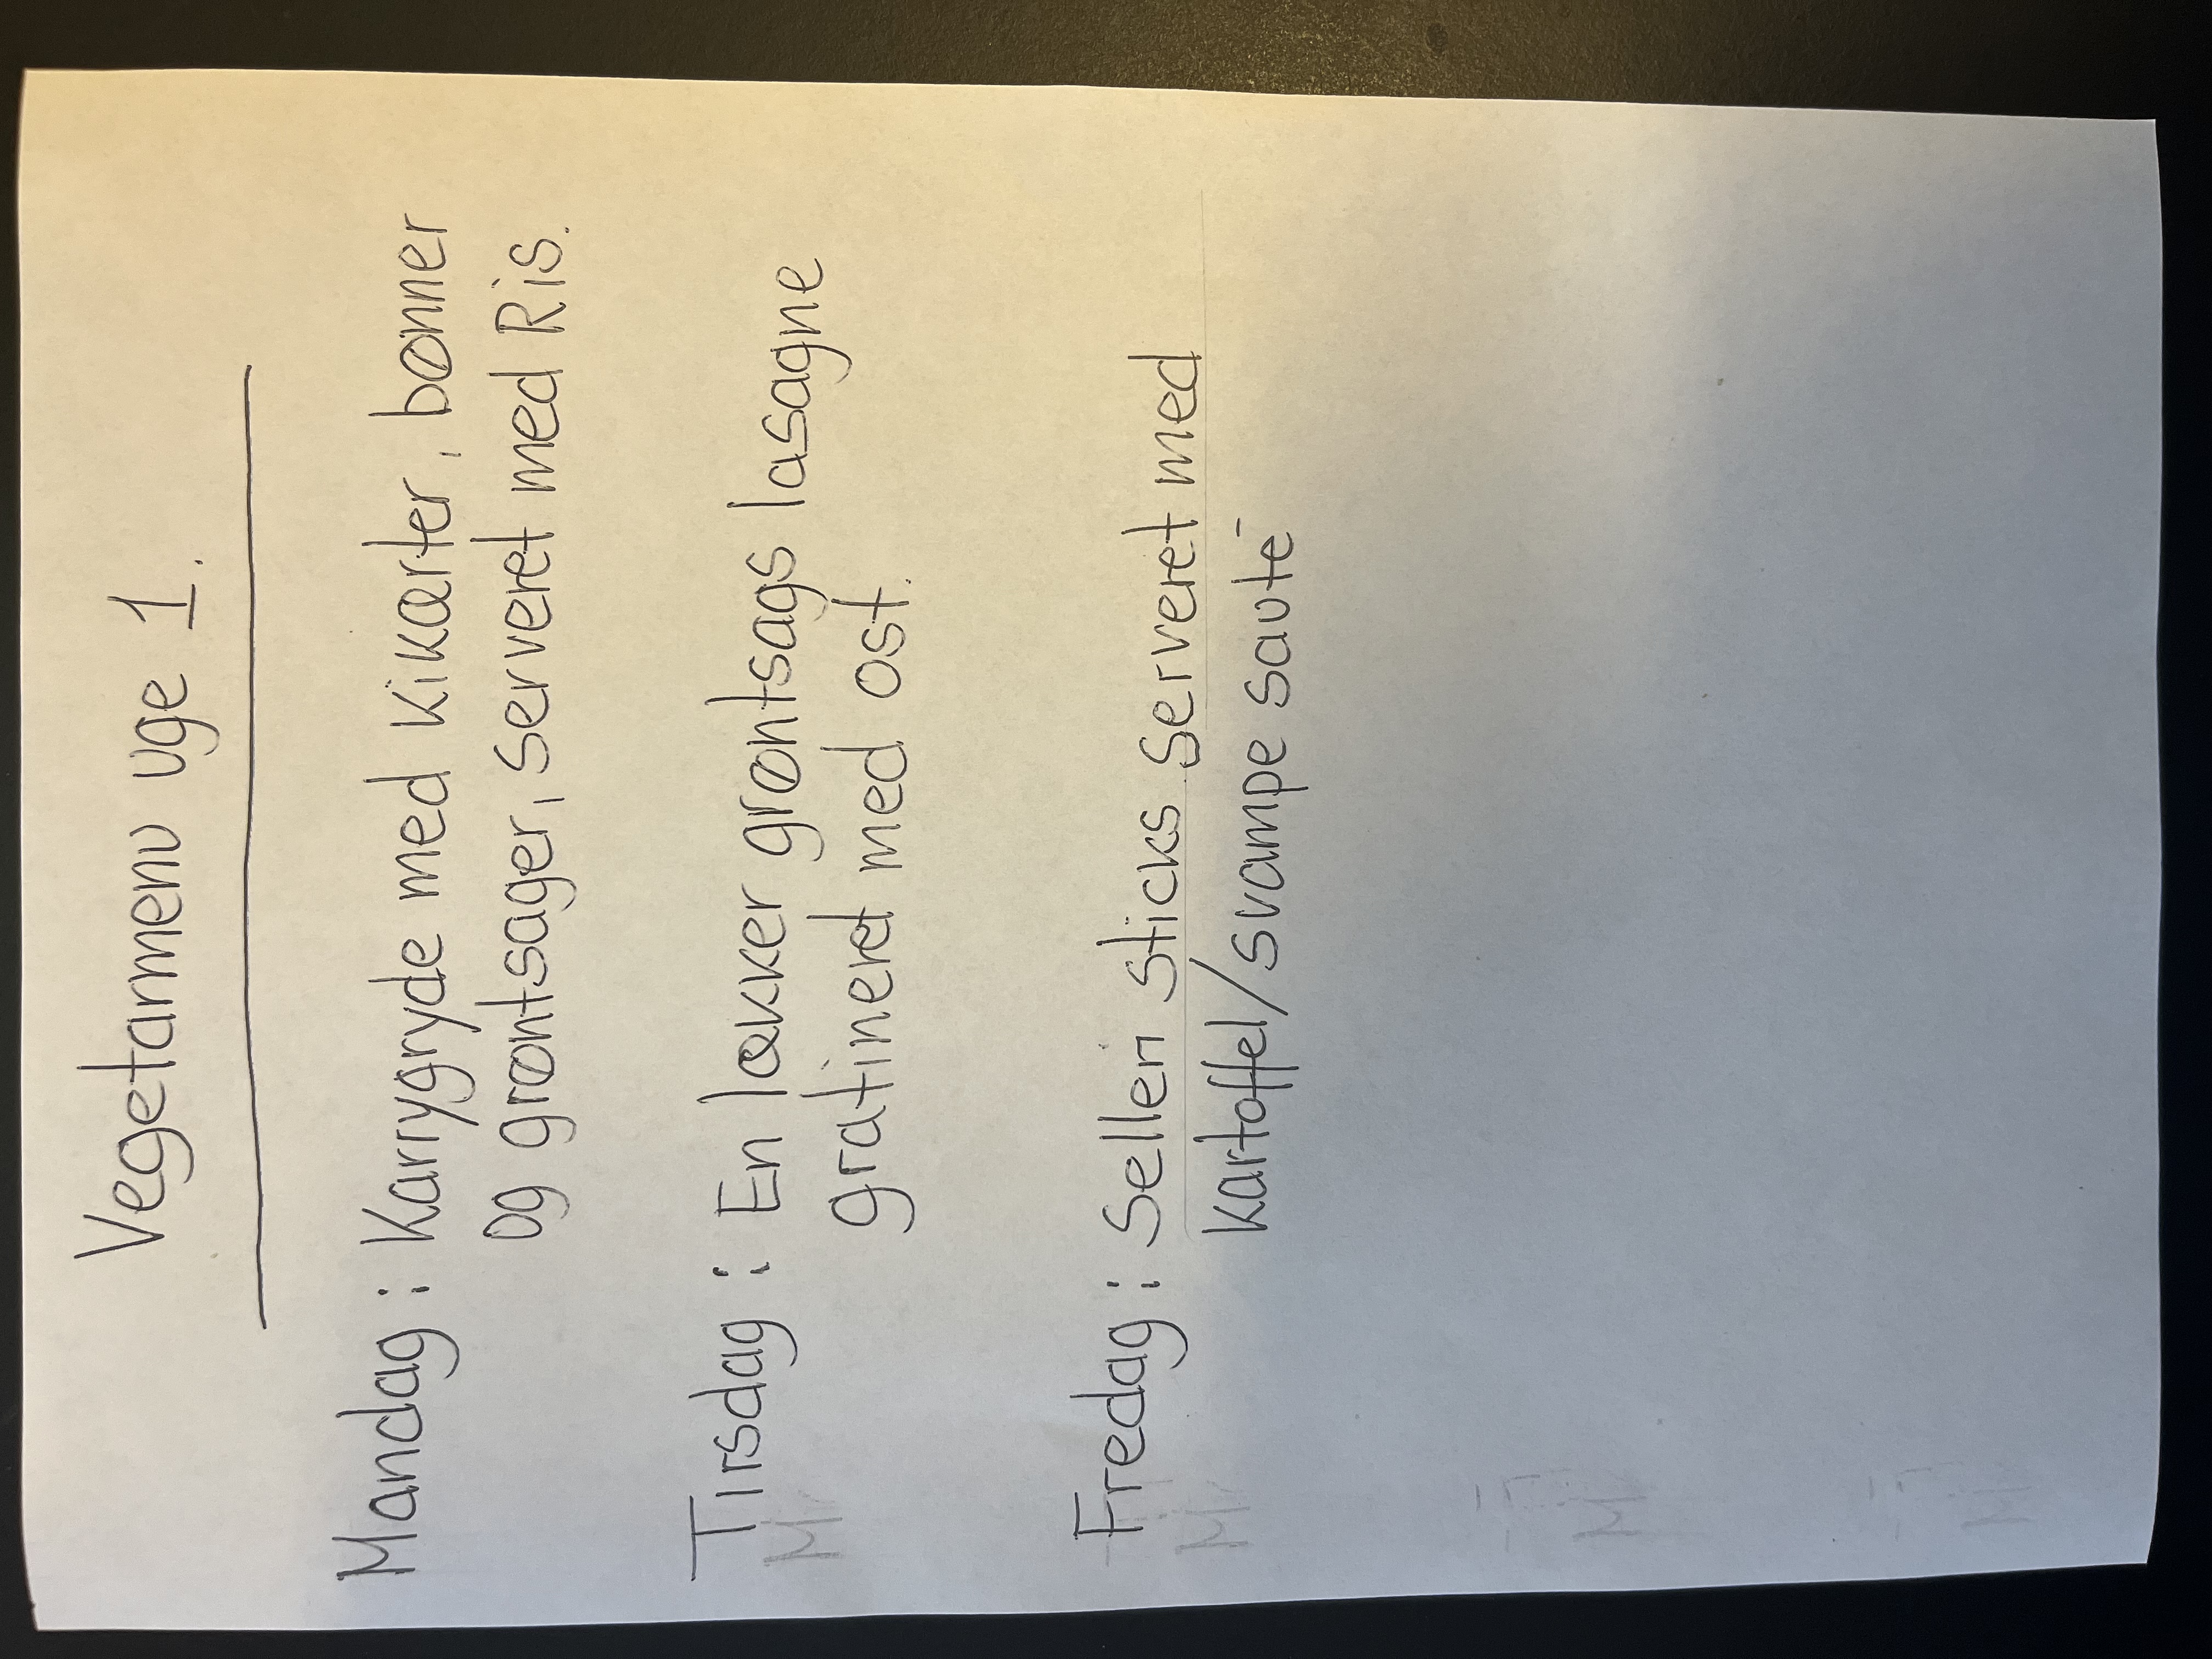 Vegetarmenu uge 1.
Mandag: Karrygryde med kikærter, bønner
og grøntsager, serveret med Ris.
Tirsdag: En lækker grøntsags lasagne
gratineret med ost.
Fredag: Selleri sticks serveret med
kartoffel/svampe sauté